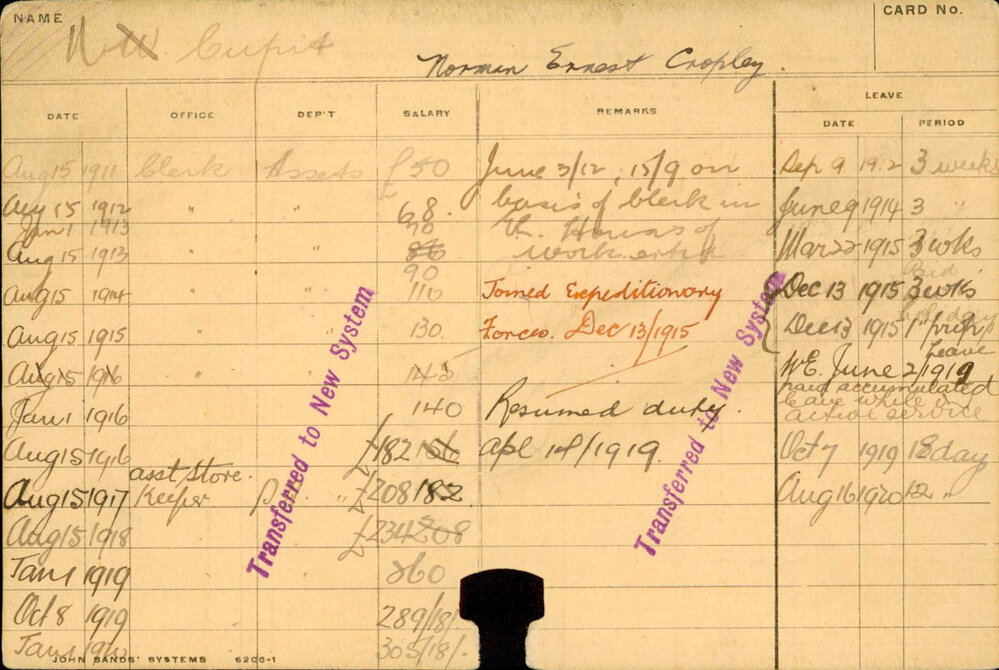 NAME
CARD No.
Cupit
Norman Ernest Cropley.
LEAVE
DATE OFFICE DEP'T SALARY REMARKS DATE PERIOD
Aug 15 1911 Clerk Assets £50 June 3/12, 15/9 on Sep 9 1912 3 weeks
Aug 15 1912 " " 68. basis of clerk in June 9 1914 3 "
Jan 1 1913 of
Aug 15 1913 " " work Mar 22 1915 3 wks
90 Paid
Aug 15 1914 " " 110 Joined Expeditionary Dec 13 1915 3 wks
holiday
Aug 15 1915 " 130. Forces. Dec 13/1915 Dec 13 1915 1"
Leave
Aug 15 1916 " W.E. June 2/1919
paid accumulated
Jan 1 1916 140 Resumed duty. leave while on
active service
Aug 15 1916 £182 156 Apl 14/1919. Oct 7 1919 18 day
asst. Store
Aug 15 1917 Keeper " £208 182 Aug 16 1920 12 "
Aug 15 1918 £234 208
Jan 1 1919 260
Oct 8 1919 289/18/-
Jan 305/18/-.
Transferred to New System
Transferred to New System
JOHN SANDS' SYSTEMS 6206-1